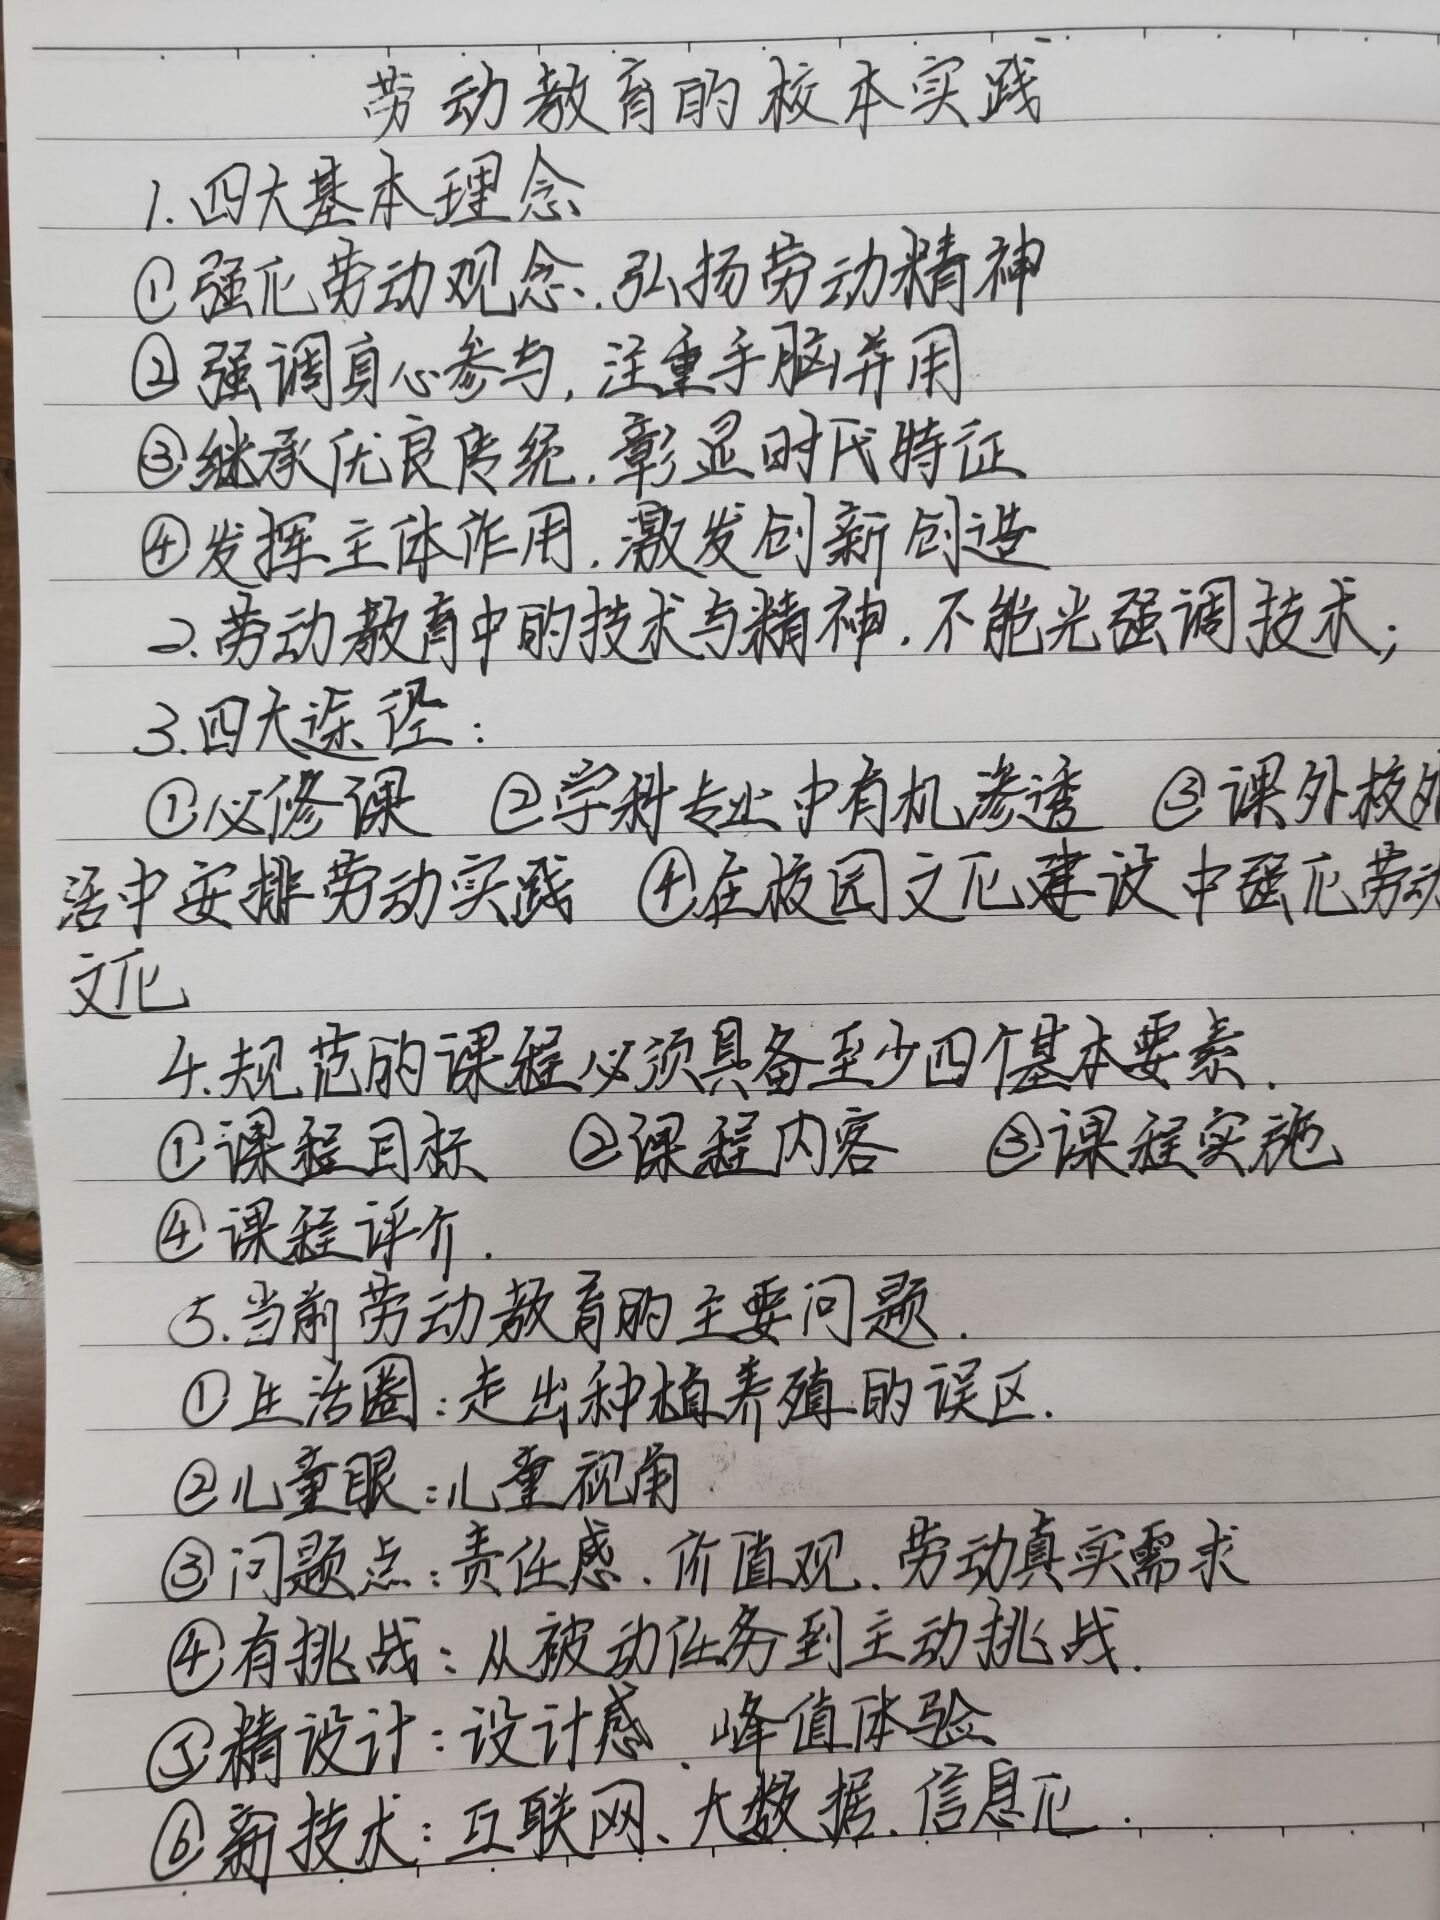 劳动教育的校本实践
1.四大基本理念
①强化劳动观念.弘扬劳动精神
②强调身心参与,注重手脑并用
③继承优良传统.彰显时代特征
④发挥主体作用.激发创新创造
2.劳动教育中的技术与精神.不能光强调技术;
3.四大途径:
①必修课 ②学科专业中有机渗透 ③课外校外
活中安排劳动实践 ④在校园文化建设中强化劳动
文化
4.规范的课程必须具备至少四个基本要素.
①课程目标 ②课程内容 ③课程实施
④课程评介.
5.当前劳动教育的主要问题.
①生活圈:走出种植养殖的误区.
②儿童眼:儿童视角
③问题点:责任感.价值观.劳动真实需求
④有挑战:从被动任务到主动挑战.
⑤精设计:设计感、峰值体验
⑥新技术:互联网、大数据.信息化.